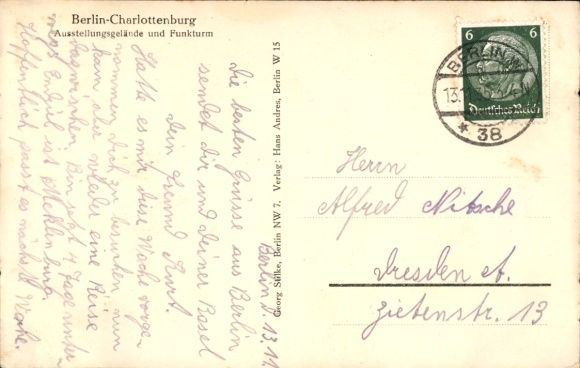 Berlin-Charlottenburg
Ausstellungsgelände und Funkturm
Georg Stilke, Berlin NW 7. Verlag: Hans Andres, Berlin W 15
6 6
Deutsches Reich
BERLIN
13.
* 38
Berlin d. 13.11.
Die besten Grüsse aus Berlin
sendet dir und deiner Basel
dein Freund Kurt.
Hatte es mir diese Woche vorge-
nommen, dich zu besuchen, nun
kam aber wieder eine Reise
dazwischen. Bin jetzt 4 Tage unter-
wegs Endziel ist Mecklenburg
Hoffentlich passt es nächste Woche.
Herrn
Alfred Nitsche
Dresden A.
Zietenstr. 13